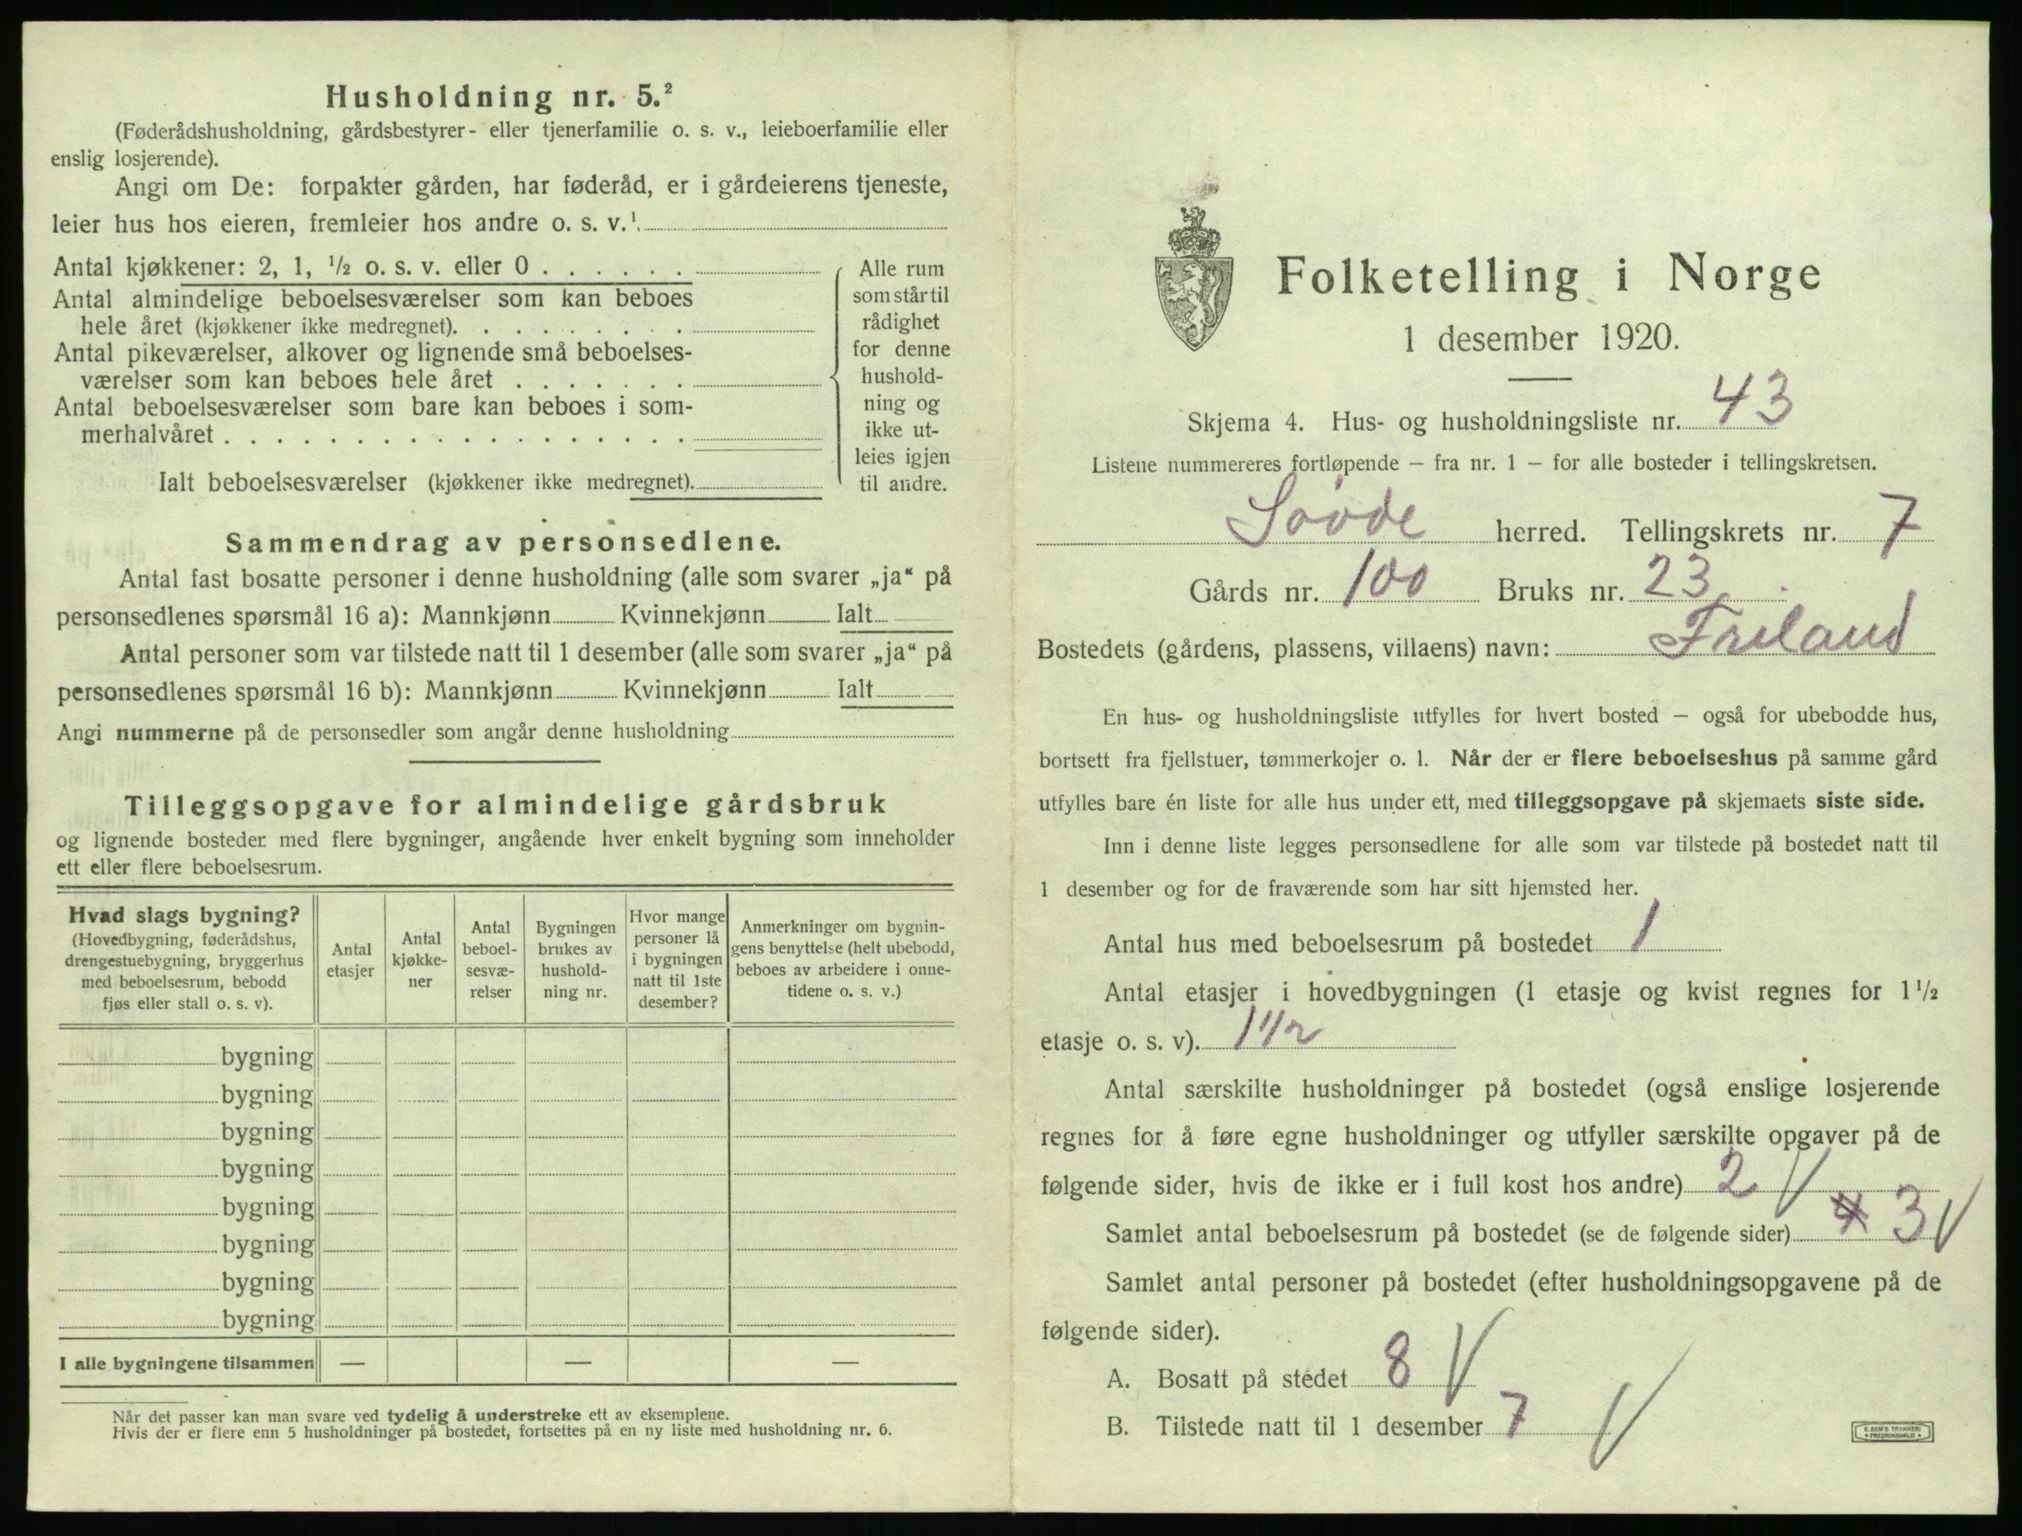 Husholdning nr. 5.²
(Føderådshusholdning, gårdsbestyrer- eller tjenerfamilie o. s. v., leieboerfamilie eller
enslig losjerende).
Angi om De: forpakter gården, har føderåd, er i gårdeierens tjeneste,
leier hus hos eieren, fremleier hos andre o. s. v.¹
Antal kjøkkener: 2, 1, ½ o. s. v. eller 0 . . . . . .
Antal almindelige beboelsesværelser som kan beboes
hele året (kjøkkener ikke medregnet). . . . . . . . .
Antal pikeværelser, alkover og lignende små beboelses-
værelser som kan beboes hele året . . . . . . .
Antal beboelsesværelser som bare kan beboes i som-
merhalvåret . . . . . . . . . . . . . . . . . .
Ialt beboelsesværelser (kjøkkener ikke medregnet).
Alle rum
som står til
rådighet
for denne
hushold-
ning og
ikke ut-
leies igjen
til andre.
Sammendrag av personsedlene.
Antal fast bosatte personer i denne husholdning (alle som svarer „ja“ på
personsedlenes spørsmål 16 a): Mannkjønn Kvinnekjønn Ialt
Antal personer som var tilstede natt til 1 desember (alle som svarer „ja“ på
personsedlenes spørsmål 16 b): Mannkjønn Kvinnekjønn Ialt
Angi nummerne på de personsedler som angår denne husholdning
Tilleggsopgave for almindelige gårdsbruk
og lignende bosteder med flere bygninger, angående hver enkelt bygning som inneholder
ett eller flere beboelsesrum.
Hvad slags bygning?
(Hovedbygning, føderådshus,
drengestuebygning, bryggerhus
med beboelsesrum, bebodd
fjøs eller stall o. s. v).
Antal
etasjer
Antal
kjøkke-
ner
Antal
beboel-
sesvæ-
relser
Bygningen
brukes av
hushold-
ning nr.
Hvor mange
personer lå
i bygningen
natt til 1ste
desember?
Anmerkninger om bygnin-
gens benyttelse (helt ubebodd,
beboes av arbeidere i onne-
tidene o. s. v.)
bygning
bygning
bygning
bygning
bygning
bygning
bygning
bygning
I alle bygningene tilsammen — — —
Når det passer kan man svare ved tydelig å understreke ett av eksemplene.
Hvis der er flere enn 5 husholdninger på bostedet, fortsettes på en ny liste med husholdning nr. 6.
Folketelling i Norge
1 desember 1920.
Skjema 4. Hus- og husholdningsliste nr. 43
Listene nummereres fortløpende – fra nr. 1 – for alle bosteder i tellingskretsen.
Søvde herred. Tellingskrets nr. 7
Gårds nr. 100 Bruks nr. 23
Bostedets (gårdens, plassens, villaens) navn: Friland
En hus- og husholdningsliste utfylles for hvert bosted – også for ubebodde hus,
bortsett fra fjellstuer, tømmerkojer o. l. Når der er flere beboelseshus på samme gård
utfylles bare én liste for alle hus under ett, med tilleggsopgave på skjemaets siste side.
Inn i denne liste legges personsedlene for alle som var tilstede på bostedet natt til
1 desember og for de fraværende som har sitt hjemsted her.
Antal hus med beboelsesrum på bostedet 1
Antal etasjer i hovedbygningen (1 etasje og kvist regnes for 1½
etasje o. s. v). 1 1/2
Antal særskilte husholdninger på bostedet (også enslige losjerende
regnes for å føre egne husholdninger og utfyller særskilte opgaver på de
følgende sider, hvis de ikke er i full kost hos andre) 2 V
Samlet antal beboelsesrum på bostedet (se de følgende sider) 4 3 V
Samlet antal personer på bostedet (efter husholdningsopgavene på de
følgende sider).
A. Bosatt på stedet 8 V
B. Tilstede natt til 1 desember 7 V
E. SEM'S TRYKKERI
FREDRIKSHALD